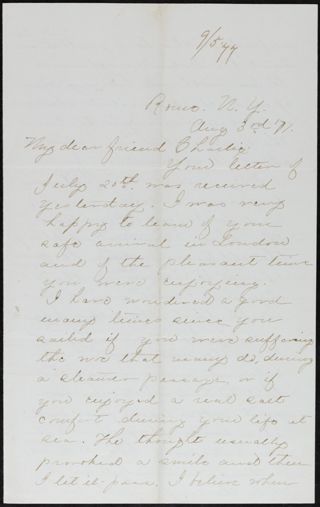 9/5 77
Rome. N. Y.
Aug 3rd 71.
My dear friend Charlie
Your letter of
July 20th. was received
yesterday. I was very
happy to learn of your
safe arrival in London
and of the pleasant time
you were enjoying.
I have wondered a good
many times since you
sailed if you were suffering
the woe that many do, during
a steamer passage, or if
you enjoyed a real salt
comfort during your life at
sea. The thought usually
provoked a smile and then
I let it pass. I believe when